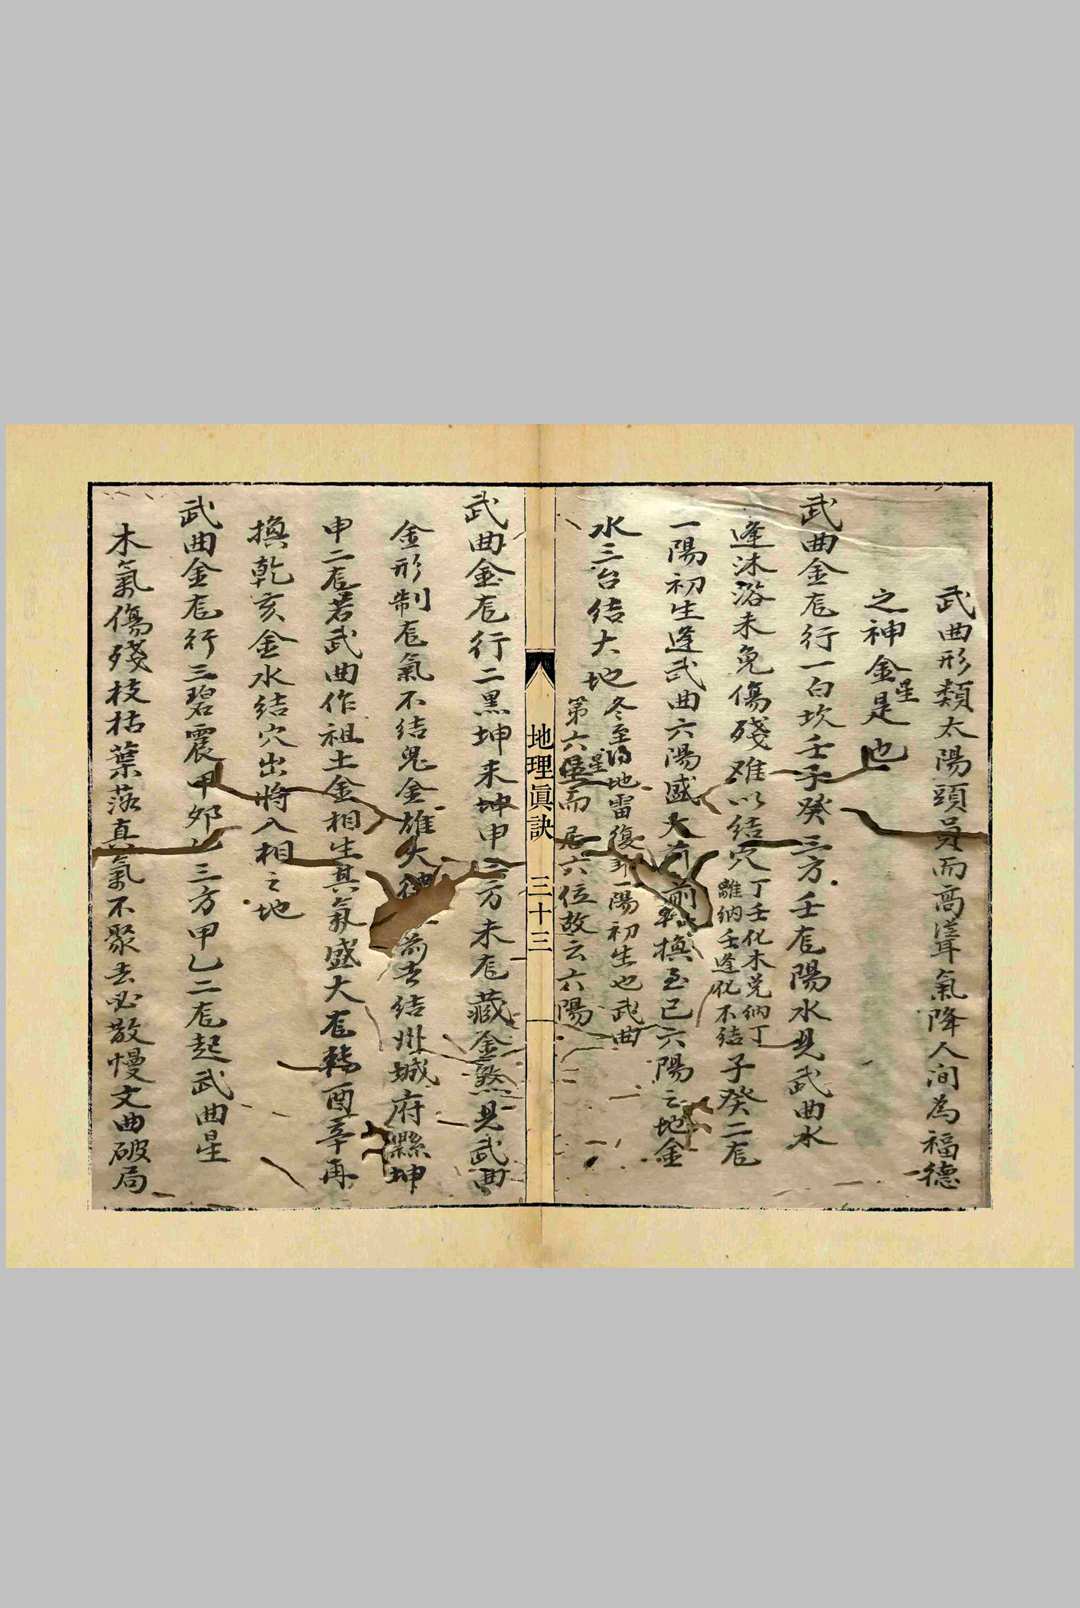 武曲形類太陽頭員而高聳氣降人间為福德
之神金星是也
武曲金龙行一白坎壬子癸三方壬龙陽水見武曲水
逢沐浴未免傷殘难以结穴
丁壬化木兑纳丁
離纳壬逢化不结
子癸二龙
一陽初生逢武曲六陽盛大
前轉換至已六陽之地金
水三台结大地
冬至
地雷復卦一陽初生也武曲
第六星而居六位故云六陽
地理眞訣
三十三
武曲金龙行二黑坤未坤申
方未龙藏金煞見武曲
金形制龙氣不结鬼金雄大
结州城府縣坤
申二龙若武曲作祖土金相生其氣盛大龙轉酉辛再
換乾亥金水结穴出將入相之地
武曲金龙行三碧震甲卯乙三方甲乙二龙起武曲星
木氣傷殘枝枯葉落真氣不聚去必散慢文曲破局